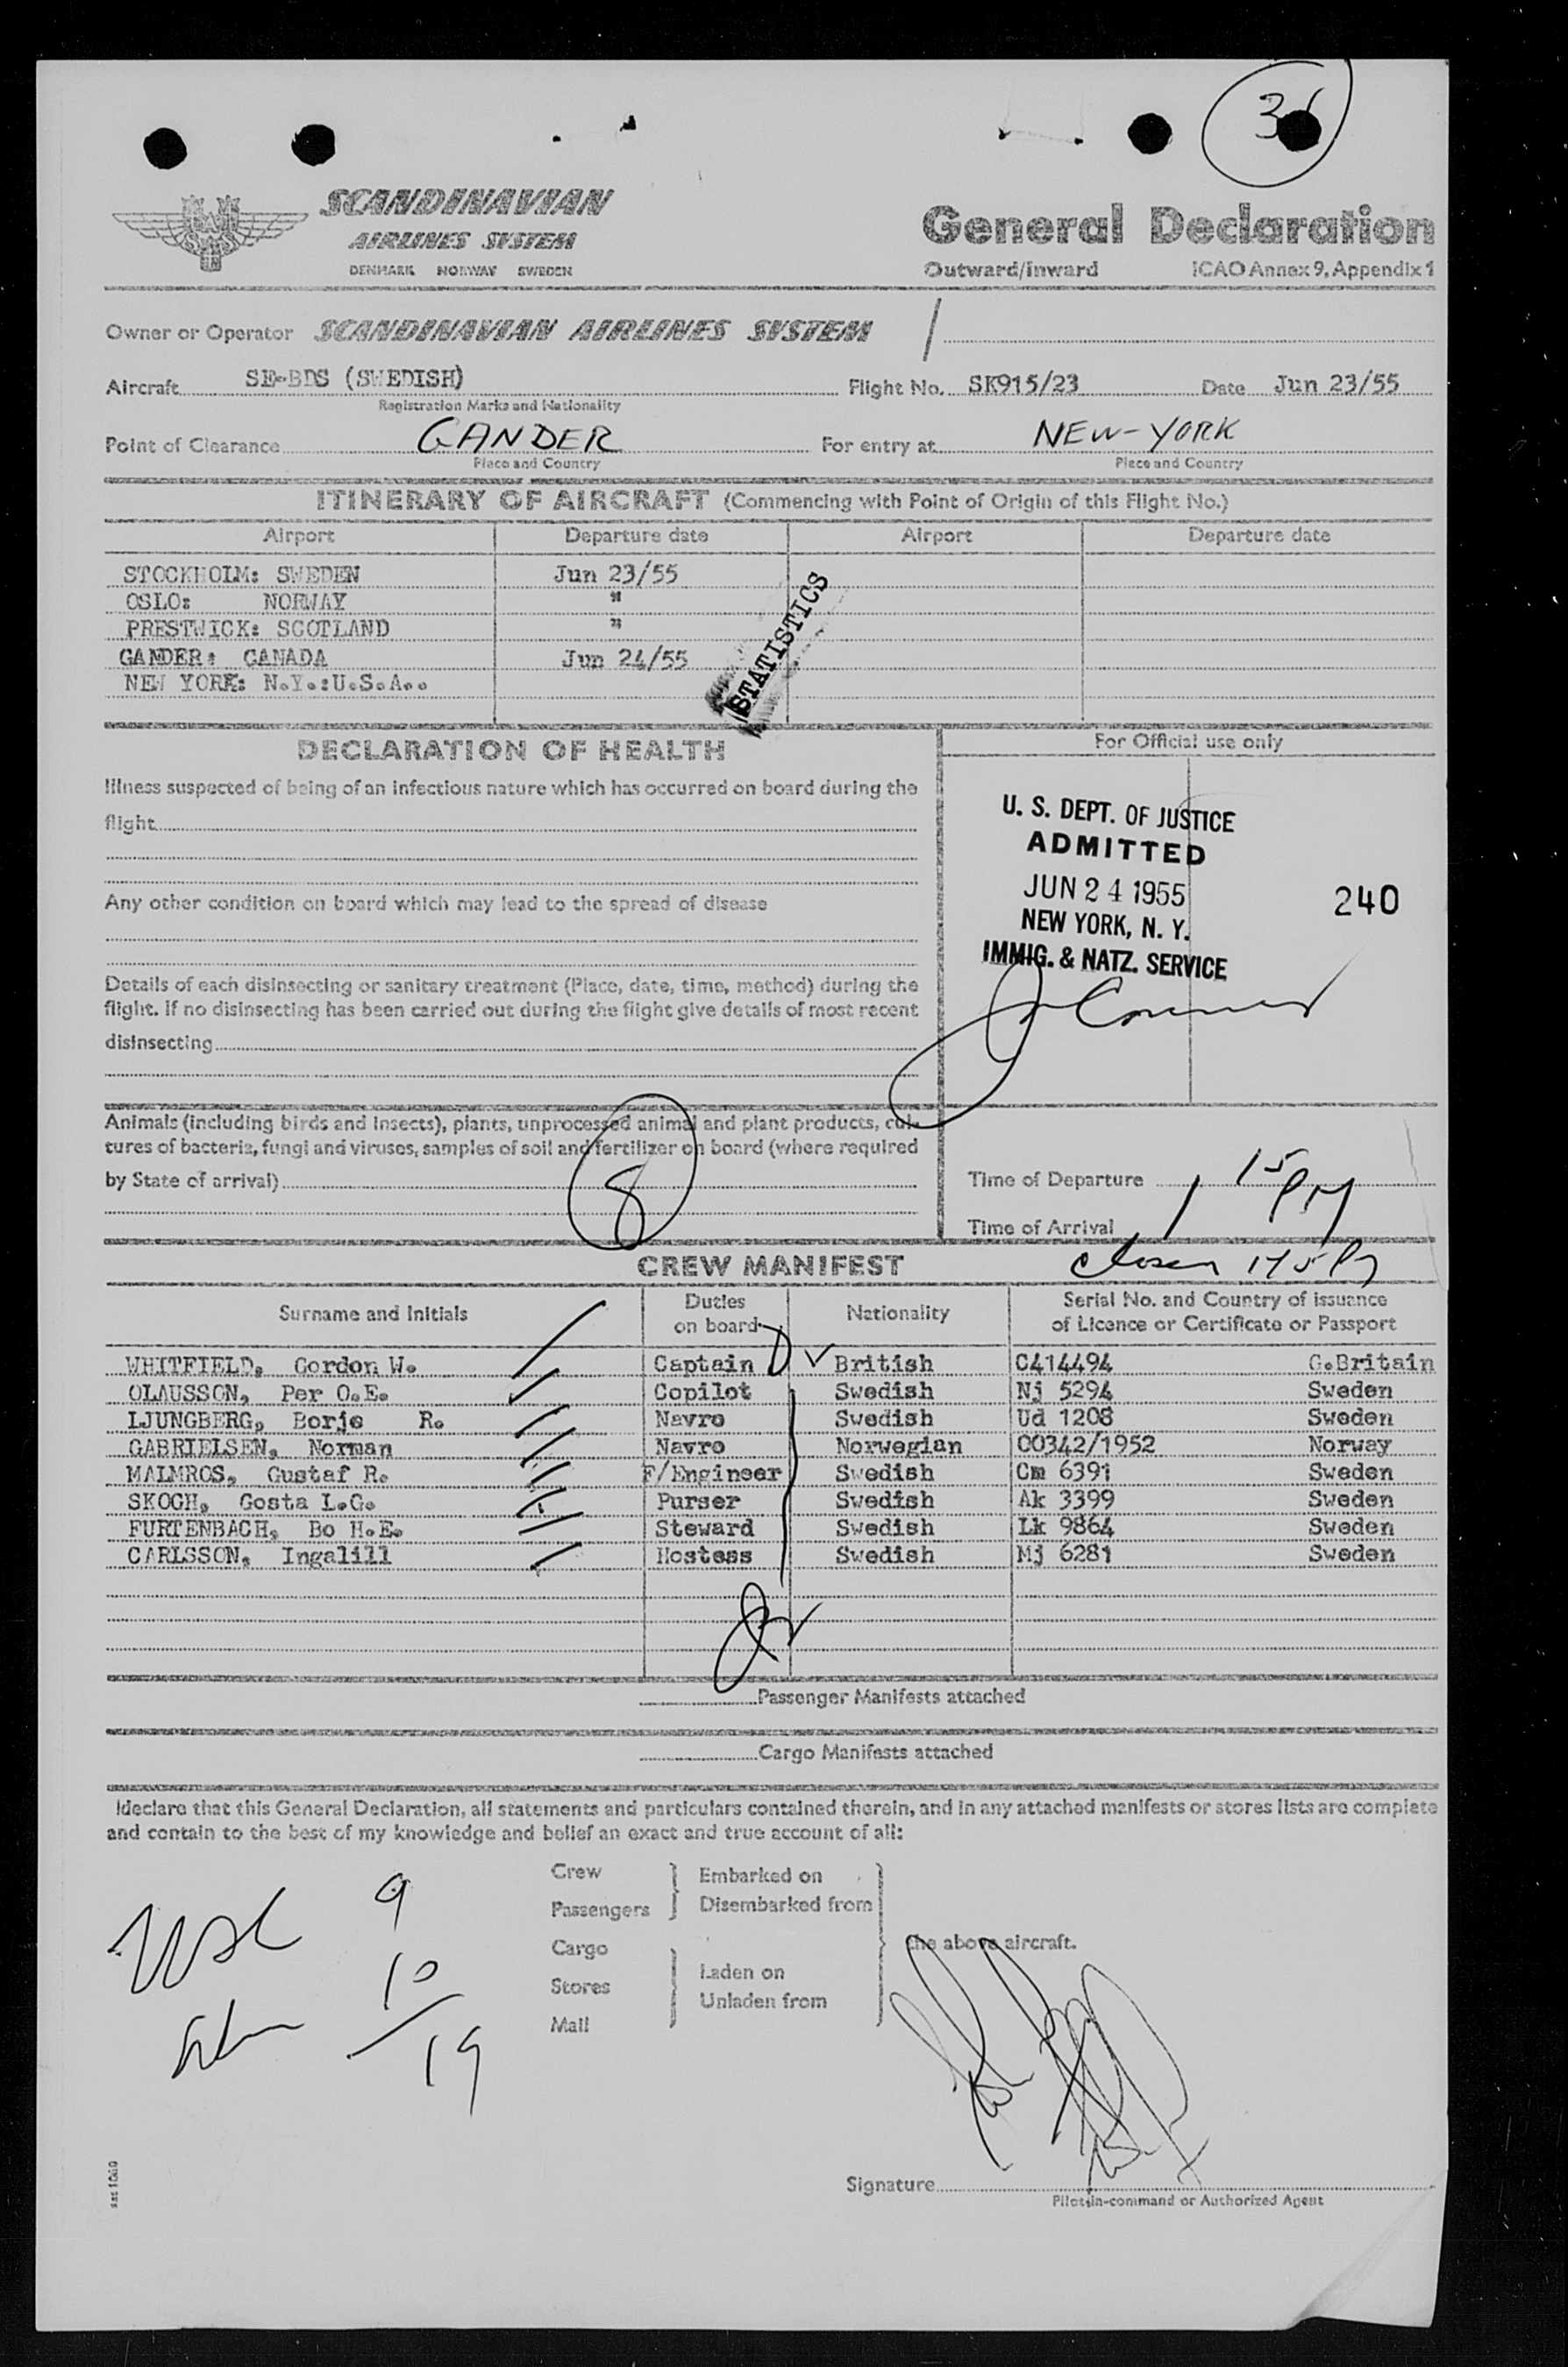 SCANDINAVIAN
AIRLINES SYSTEM
DENMARK NORWAY SWEDEN
General Declaration
Outward/Inward ICAO Annex 9, Appendix 1
Owner or Operator SCANDINAVIAN AIRLINES SYSTEM
Aircraft SE-BDS (SWEDISH) Flight No. SK915/23 Date Jun 23/55
Registration Marks and Nationality
Point of Clearance GANDER For entry at NEW-YORK
Place and Country Place and Country
ITINERARY OF AIRCRAFT (Commencing with Point of Origin of this Flight No.)
Airport Departure date Airport Departure date
STOCKHOLM: SWEDEN Jun 23/55
OSLO: NORWAY "
PRESTWICK: SCOTLAND "
GANDER: CANADA Jun 24/55
NEW YORK: N.Y.:U.S.A..
STATISTICS
DECLARATION OF HEALTH
Illness suspected of being of an infectious nature which has occurred on board during the
flight
Any other condition on board which may lead to the spread of disease
Details of each disinsecting or sanitary treatment (Place, date, time, method) during the
flight. If no disinsecting has been carried out during the flight give details of most recent
disinsecting
Animals (including birds and insects), plants, unprocessed animal and plant products, cul-
tures of bacteria, fungi and viruses, samples of soil and fertilizer on board (where required
by State of arrival)
8
For Official use only
U. S. DEPT. OF JUSTICE
ADMITTED
JUN 24 1955
240
NEW YORK, N. Y.
IMMIG. & NATZ. SERVICE
Time of Departure
1 15 PM
Time of Arrival
CREW MANIFEST
Surname and Initials Duties on board Nationality Serial No. and Country of issuance
of Licence or Certificate or Passport
WHITFIELD, Gordon W. Captain British C414494 G.Britain
OLAUSSON, Per O.E. Copilot Swedish Nj 5294 Sweden
LJUNGBERG, Borje R. Navro Swedish Ud 1208 Sweden
GABRIELSEN, Norman Navro Norwegian 00342/1952 Norway
MALMROS, Gustaf R. F/Engineer Swedish Cm 6391 Sweden
SKOGH, Gosta L.G. Purser Swedish Ak 3399 Sweden
FURTENBACH, Bo H.E. Steward Swedish Lk 9864 Sweden
CARLSSON, Ingalill Hostess Swedish Mj 6281 Sweden
Passenger Manifests attached
Cargo Manifests attached
I declare that this General Declaration, all statements and particulars contained therein, and in any attached manifests or stores lists are complete
and contain to the best of my knowledge and belief an exact and true account of all:
Crew
Passengers
Embarked on
Disembarked from
Cargo
Stores
Mail
Laden on
Unladen from
the above aircraft.
9
10
19
Signature
Pilot-in-command or Authorized Agent